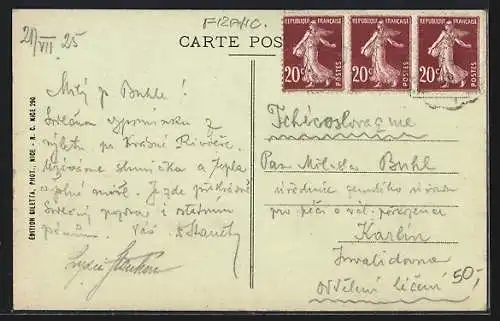 21/VII. 25
FRANC.
CARTE POS
REPUBLIQUE FRANÇAISE
20c POSTES
REPUBLIQUE FRANÇAISE
20c POSTES
REPUBLIQUE FRANÇAISE
20c POSTES
EDITION GILETTA, PHOT., NICE - R. C. NICE 296
Milý p. Buhle!
Srdečnou vzpomínku z
výletu po krásné Rivieře.
Užíváme sluníčka a tepla
a plné moře. Je zde překrásně
Srdečný pozdrav i ostatním
pánům. Váš
Tchécoslovaquie
Pan Miloslav Buhl
úředník zemského úřadu
pro péči o vál. poškozence
Karlín
Invalidovna
oddělení léčení
50,-